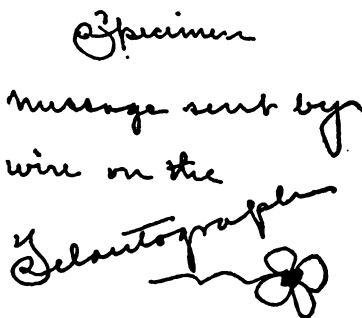 Specimen
message sent by
wire on the
Telautograph